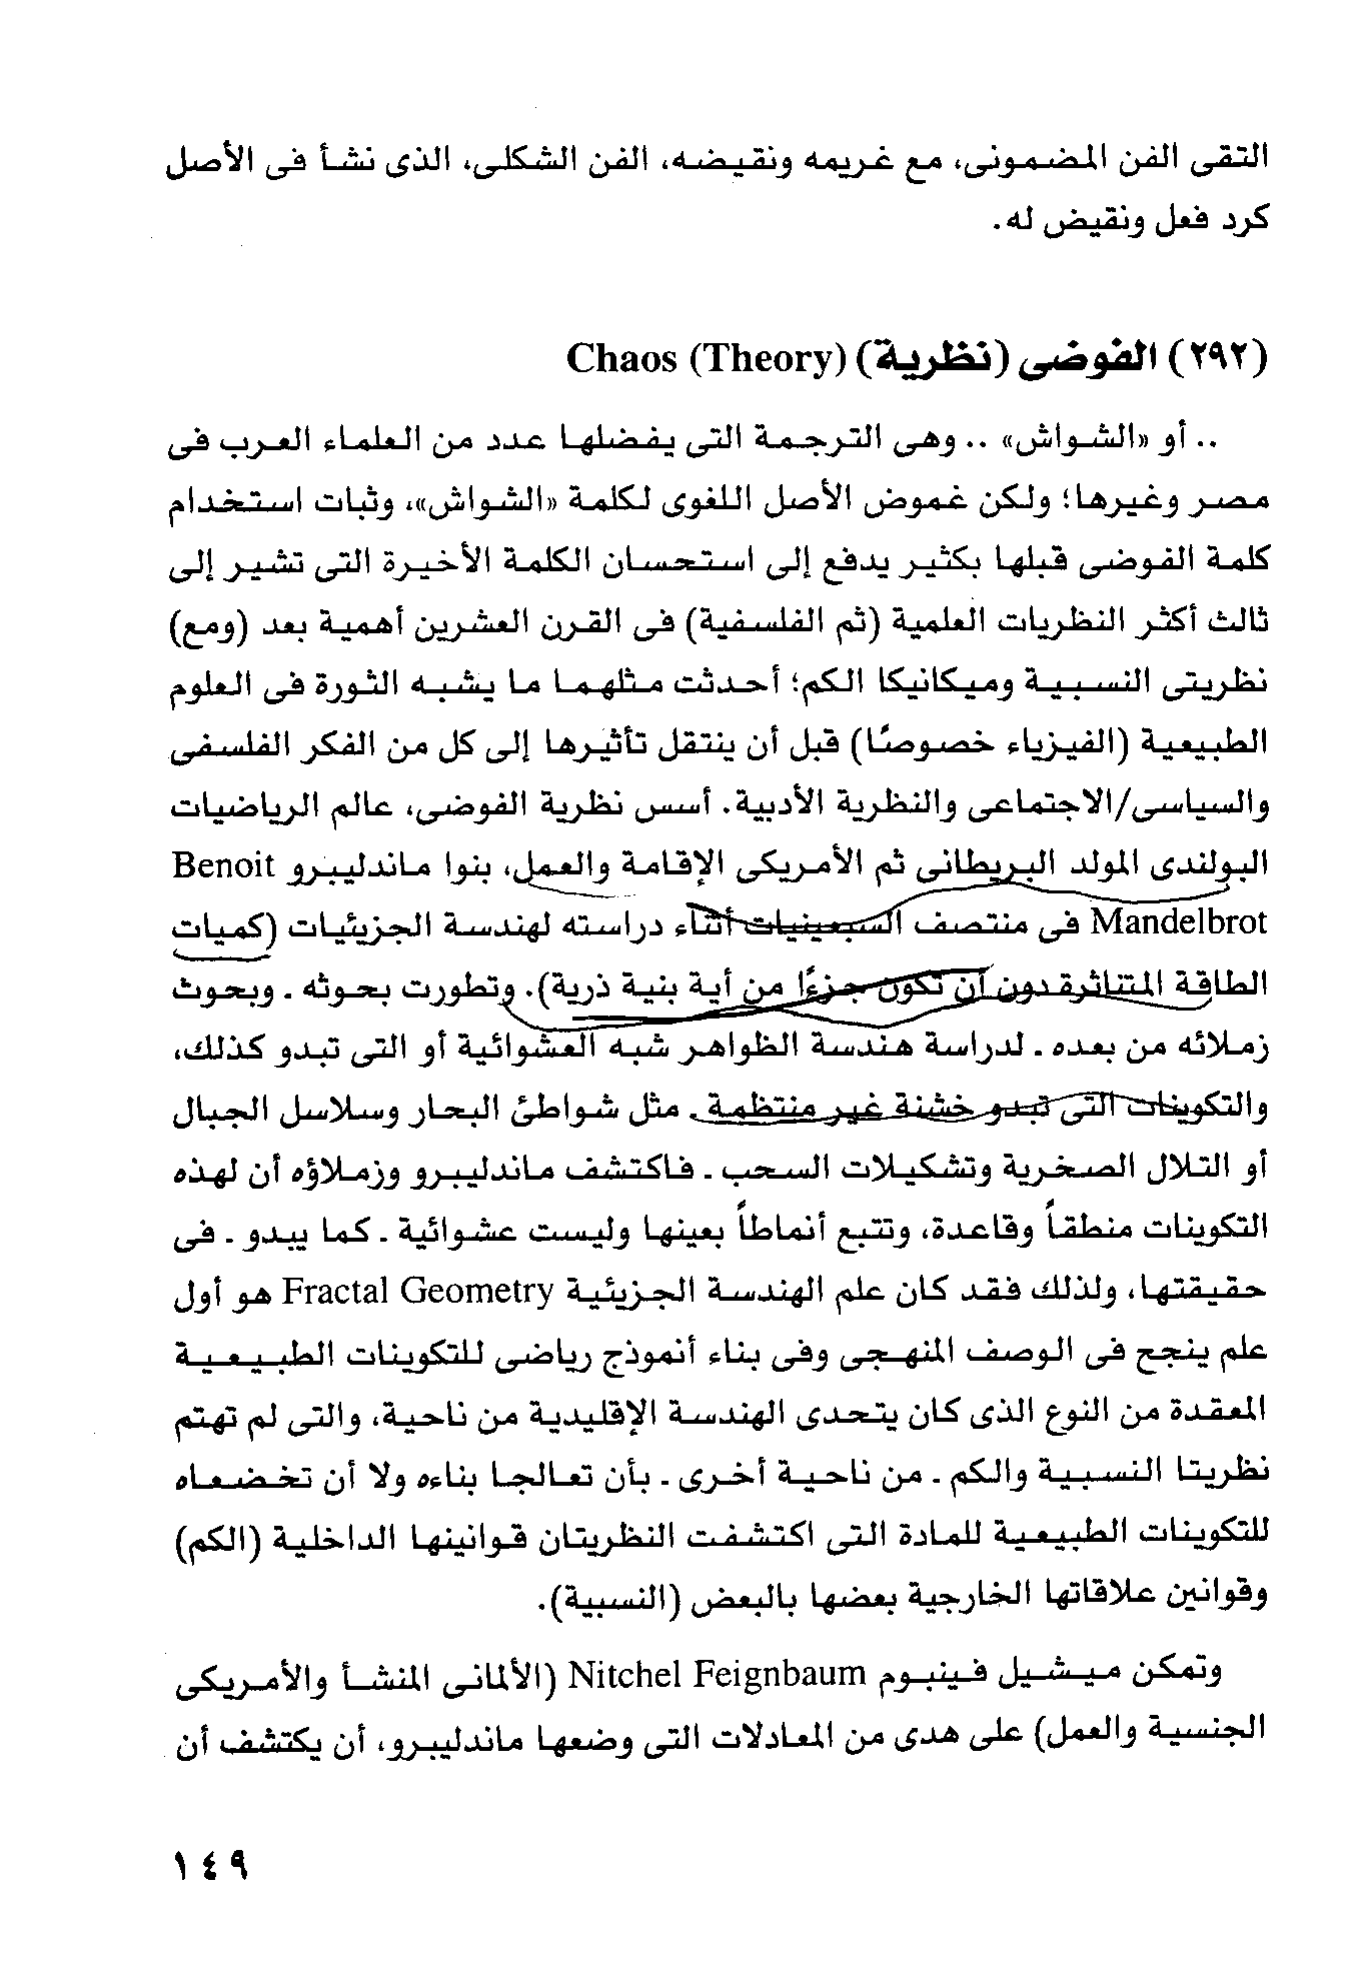 التقى الفن المضمونى، مع غريمه ونقيضه، الفن الشكلى، الذى نشأ فى الأصل
كرد فعل ونقيض له.
(٢٩٢) الفوضى (نظرية) Chaos (Theory)
.. أو «الشواش» .. وهى الترجمة التى يفضلها عدد من العلماء العرب فى
مصر وغيرها؛ ولكن غموض الأصل اللغوى لكلمة «الشواش»، وثبات استخدام
كلمة الفوضى قبلها بكثير يدفع إلى استحسان الكلمة الأخيرة التى تشير إلى
ثالث أكثر النظريات العلمية (ثم الفلسفية) فى القرن العشرين أهمية بعد (ومع)
نظريتى النسبية وميكانيكا الكم؛ أحدثت مثلهما ما يشبه الثورة فى العلوم
الطبيعية (الفيزياء خصوصًا) قبل أن ينتقل تأثيرها إلى كل من الفكر الفلسفى
والسياسى/الاجتماعى والنظرية الأدبية. أسس نظرية الفوضى، عالم الرياضيات
البولندى المولد البريطانى ثم الأمريكى الإقامة والعمل، بنوا ماندليبرو Benoit
Mandelbrot فى منتصف السبعينيات أثناء دراسته لهندسة الجزئيات (كميات
الطاقة المتناثرة دون أن تكون جزءًا من أية بنية ذرية). وتطورت بحوثه . وبحوث
زملائه من بعده . لدراسة هندسة الظواهر شبه العشوائية أو التى تبدو كذلك،
والتكوينات التى تبدو خشنة غير منتظمة . مثل شواطئ البحار وسلاسل الجبال
أو التلال الصخرية وتشكيلات السحب . فاكتشف ماندليبرو وزملاؤه أن لهذه
التكوينات منطقاً وقاعدة، وتتبع أنماطاً بعينها وليست عشوائية . كما يبدو . فى
حقيقتها، ولذلك فقد كان علم الهندسة الجزيئية Fractal Geometry هو أول
علم ينجح فى الوصف المنهجى وفى بناء أنموذج رياضى للتكوينات الطبيعية
المعقدة من النوع الذى كان يتحدى الهندسة الإقليدية من ناحية، والتى لم تهتم
نظريتا النسبية والكم . من ناحية أخرى . بأن تعالجا بناءه ولا أن تخضعاه
للتكوينات الطبيعية للمادة التى اكتشفت النظريتان قوانينها الداخلية (الكم)
وقوانين علاقاتها الخارجية بعضها بالبعض (النسبية).
وتمكن ميشيل فينبوم Nitchel Feignbaum (الألمانى المنشأ والأمريكى
الجنسية والعمل) على هدى من المعادلات التى وضعها ماندليبرو، أن يكتشف أن
١٤٩